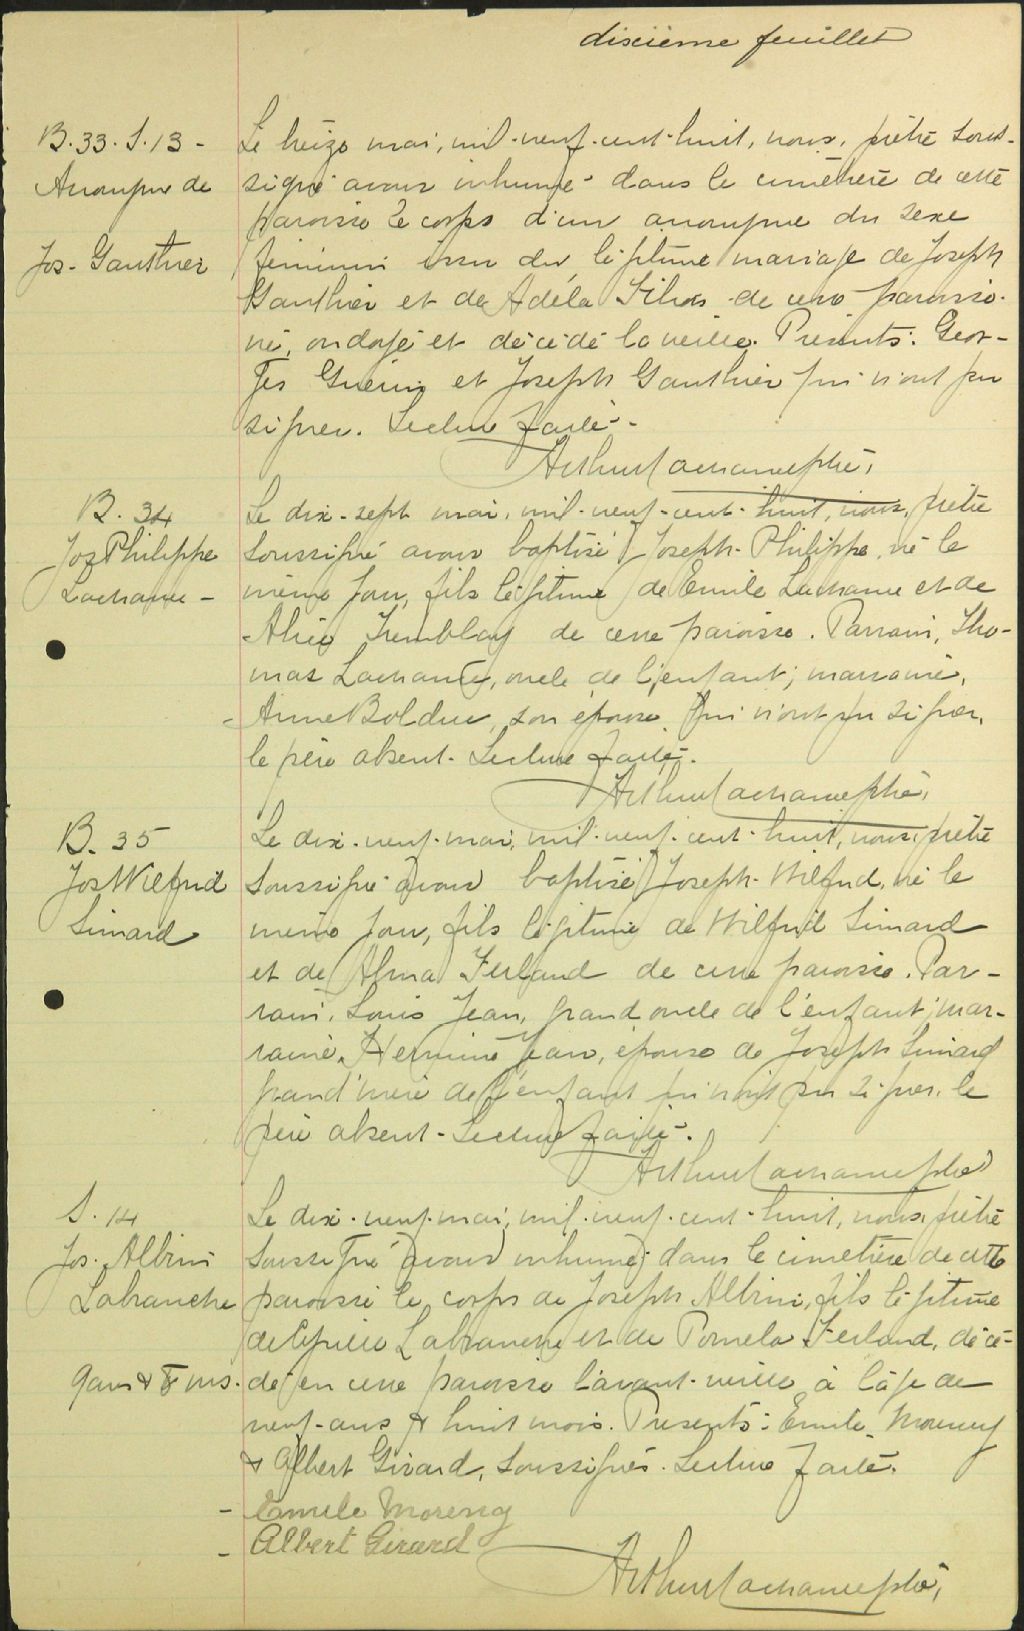 dixième feuillet
B. 33. S. 13 -
Anonyme de
Jos. Gauthier
Le treize mai, mil-neuf-cent-huit, nous, prêtre sous-
signé avons inhumé dans le cimetière de cette
paroisse le corps d'un anonyme du sexe
féminin issu du légitime mariage de Joseph
Gauthier et de Adéla de cette paroisse
né, ondoyé et décédé la veille. Présents: Geor-
ges Guérin et Joseph Gauthier qui n'ont pu
signer. Lecture faite.-
Arthur Lachance ptre,
B. 34
Jos Philippe
Lachance -
Le dix-sept mai, mil-neuf-cent-huit, nous, prêtre
soussigné avons baptisé Joseph-Philippe, né le
même jour, fils légitime de Emile Lachance et de
Alice Tremblay de cette paroisse. Parrain, Tho-
mas Lachance, oncle de l'enfant; marraine,
Anne Bolduc, son épouse qui n'ont pu signer,
le père absent. Lecture faite.
Arthur Lachance ptre,
B. 35
Jos Wilfrid
Simard
Le dix-neuf-mai, mil-neuf-cent-huit, nous, prêtre
soussigné avons baptisé Joseph-Wilfrid, né le
même jour, fils légitime de Wilfrid Simard
et de Alma Ferland de cette paroisse. Par-
rain, Louis Jean, grand oncle de l'enfant; mar-
raine, Hermine Jean, épouse de Joseph Simard
grand'mère de l'enfant qui n'ont pu signer, le
père absent - Lecture faite.
Arthur Lachance ptre
S. 14
Jos. Albini
Labranche
9 ans & 8 ms.
Le dix-neuf-mai, mil-neuf-cent-huit, nous, prêtre
soussigné avons inhumé dans le cimetière de cette
paroisse le corps de Joseph Albini, fils légitime
de Labranche et de Pomela Ferland, décé-
dé en cette paroisse l'avant-veille à l'âge de
neuf-ans & huit mois. Présents: Emile Morency
& Albert Girard, soussignés. Lecture faite.
- Emile Morency
- Albert Girard
Arthur Lachance ptre,